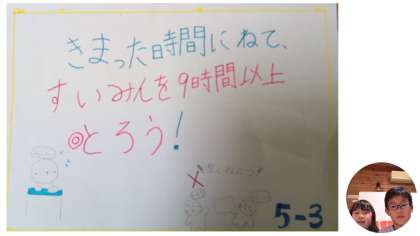 きまった時間にねて、
すいみんを9時間以上
とろう!
5-3